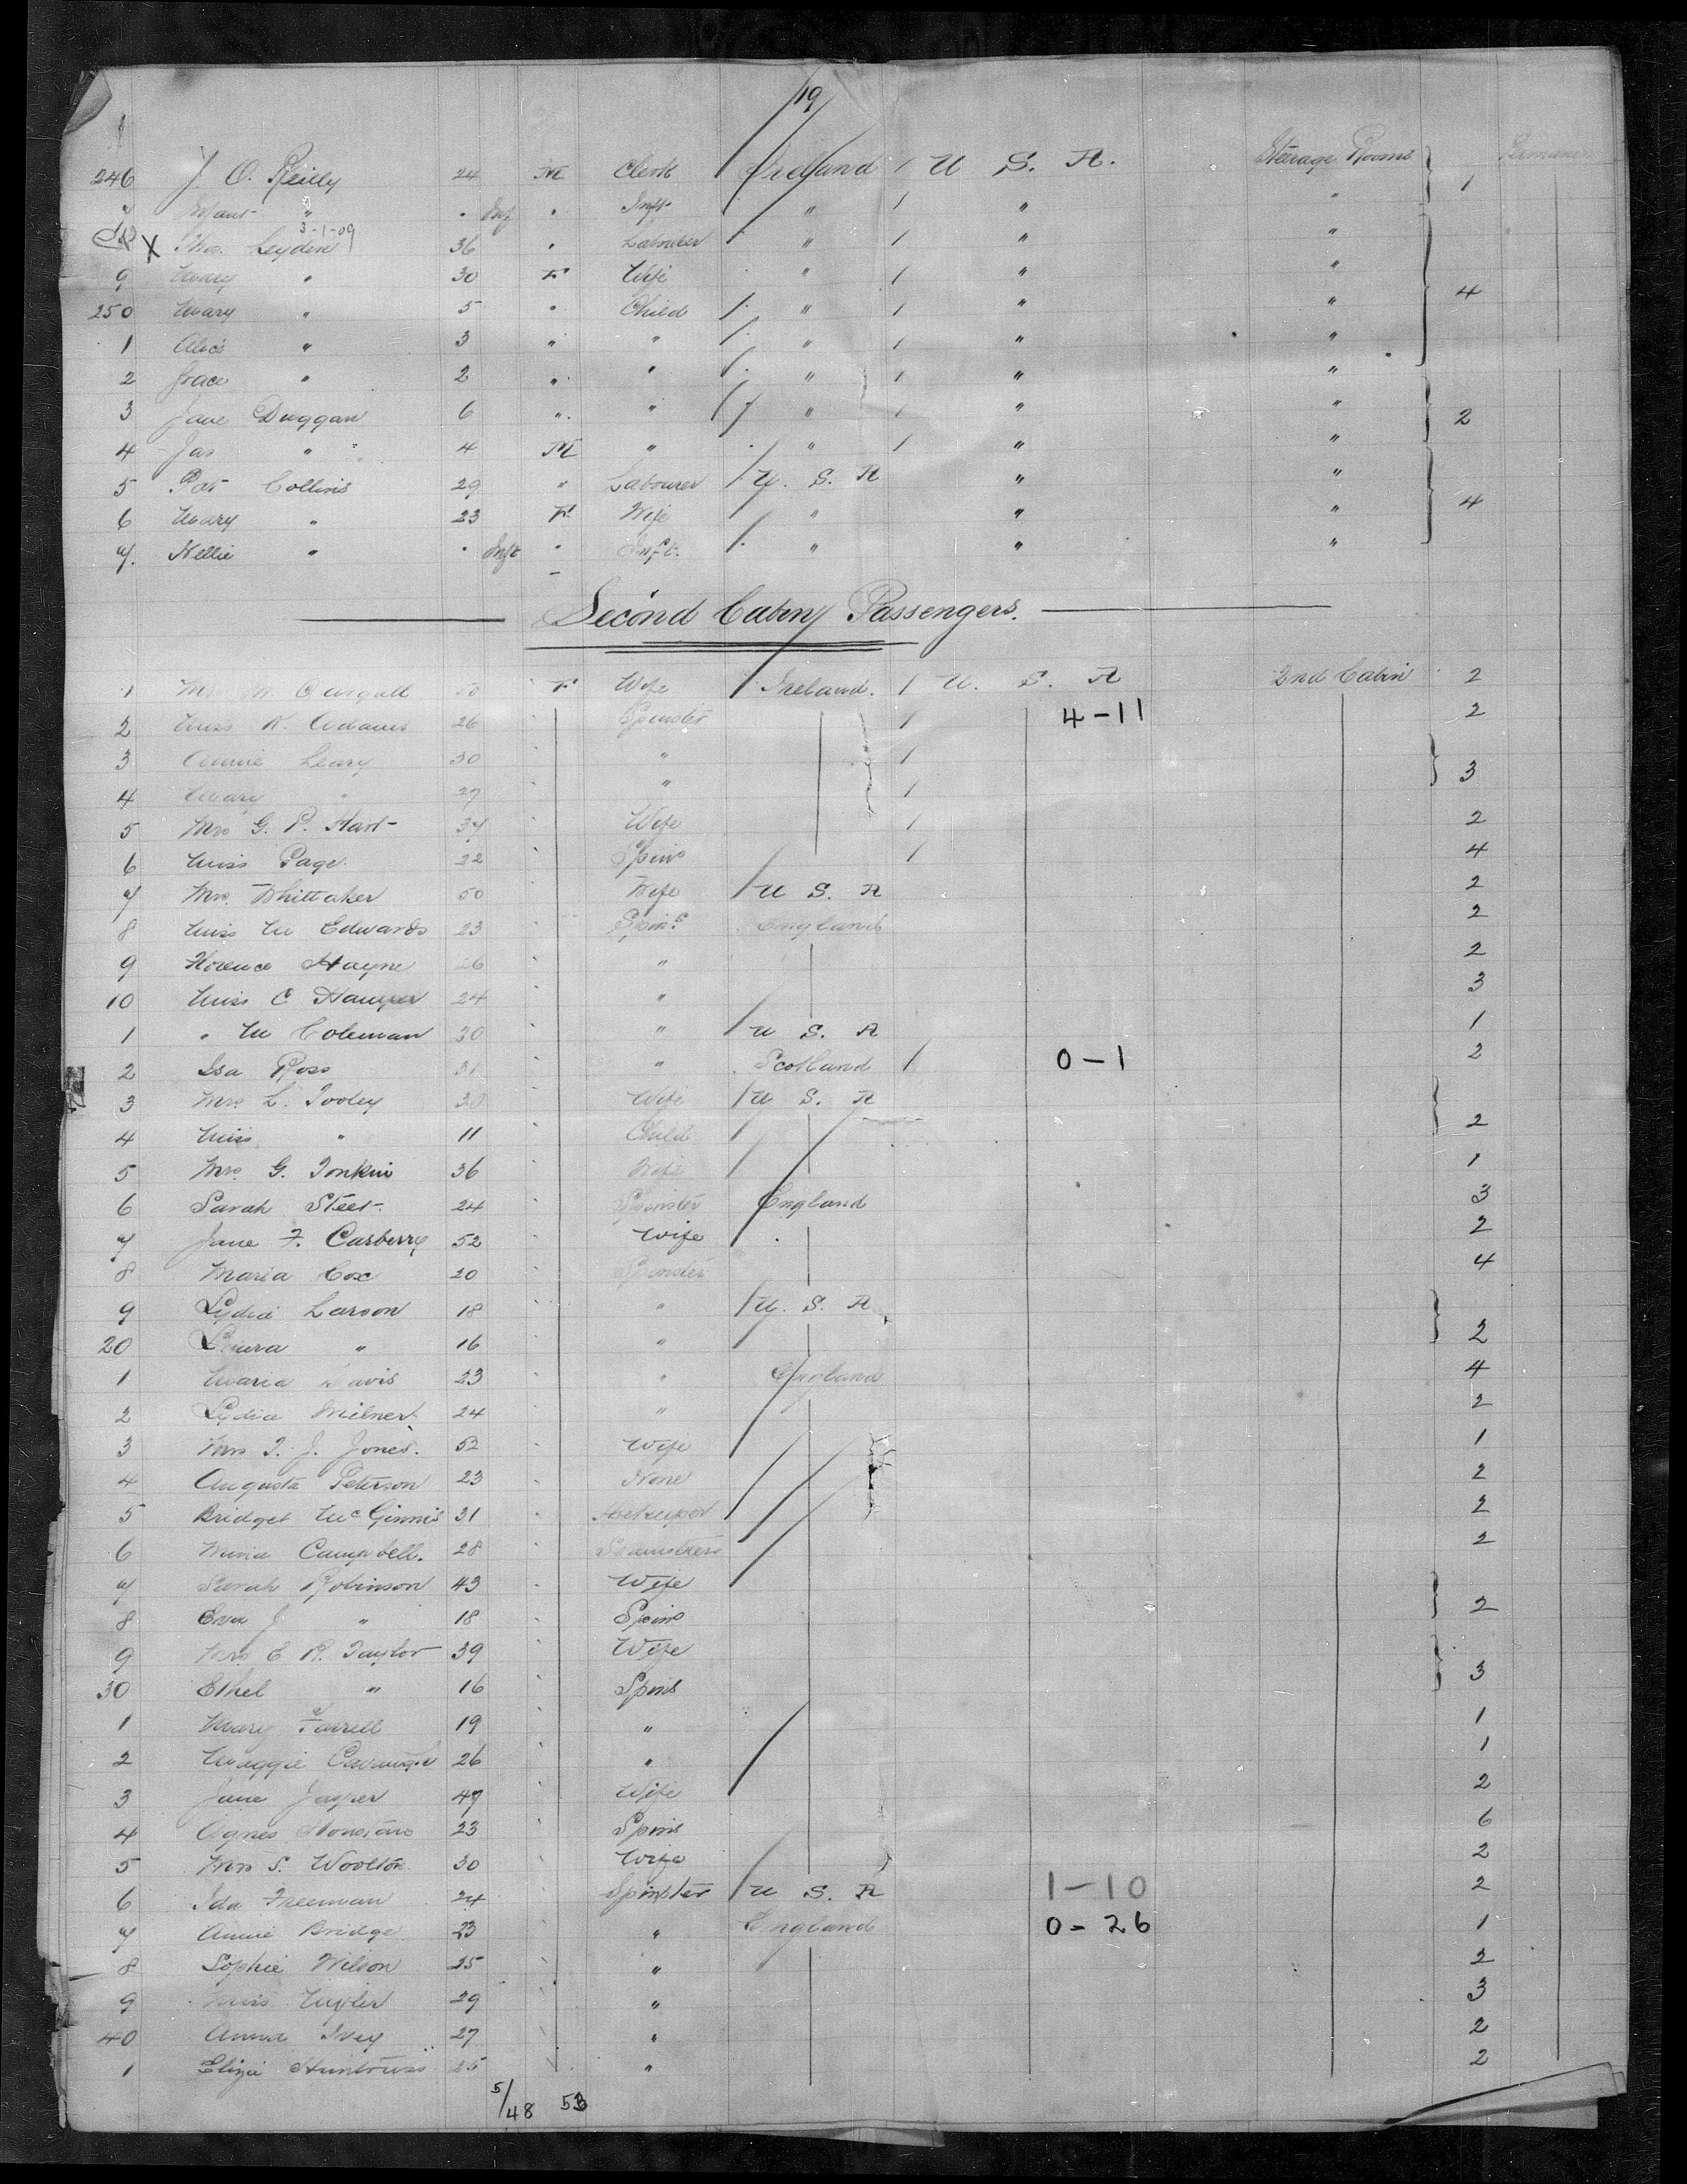 19
246 J. O. Reilly 24 M Clerk Ireland 1 U S. A. Steerage Rooms } 1
7 Infant " . Inf " Inft " 1 " "
3-1-09
X Thos. Leyden 36 " Labourer " 1 " "
9 Mary " 30 F Wife " 1 " " } 4
250 Mary " 5 " Child 1 " 1 " "
1 Alice " 3 " " 1 " 1 " "
2 Grace " 2 " " 1 " 1 " "
3 Jane Duggan 6 " " 1 " 1 " " } 2
4 Jas " 4 M " " 1 " "
5 Pat Collins 29 " Labourer 1 U. S. A " "
6 Mary " 23 F Wife " " " } 4
7 Nellie " . Inft " Inft. 1 " " "
Second Cabin Passengers.
1 Mrs M. 50 F Wife 1 Ireland. 1 U. S. A 2nd Cabin 2
2 Miss K. Adams 26 Spinster 1 4-11 2
3 Annie Leary 30 " 1 } 3
4 Mary " 27 " 1
5 Mrs G. P. Hart 34 Wife 1 2
6 Miss Page 22 Spins 1 4
7 Mrs. Whittaker 50 Wife 1 U S. A 2
8 Miss M Edwards 23 Spins England 2
9 Florence Hayne 26 " 2
10 Miss C Hamper 24 " 3
1 " M Coleman 30 " 1 U S. A 1
2 Isa Ross 31 " Scotland 1 0-1 2
3 Mrs. L. Tooley 30 Wife 1 U S. A } 2
4 Miss " 11 Child 1
5 Mrs. G. Tonkin 36 Wife 1 1
6 Sarah Steer 24 Spinster England 3
7 Jane F. Carberry 52 Wife 2
8 Maria Cox 20 Spinster 4
9 Lydia Larson 18 " 1 U. S. A } 2
20 " 16 " 1
1 Maria Davis 23 " England 4
2 Lydia Milner 24 " 2
3 Mrs T. J. Jones. 52 Wife 1
4 Augusta Peterson 23 None 2
5 Bridget McGinnis 31 Hsekeeper 2
6 Mina Campbell. 28 Seamstress 2
7 Sarah Robinson 43 Wife } 2
8 Eva J " 18 Spins
9 Mrs E R. Taylor 39 Wife } 3
30 Ethel " 16 Spins
1 Mary Farrell 19 " 1
2 Maggie 26 " 1
3 Jane Jasper 47 Wife 2
4 Agnes 23 Spins 6
5 Mrs S. Woolton 30 Wife 2
6 Ida Freeman 24 Spinster 1 U S. A 1-10 2
7 Annie Bridge 23 " England 0-26 1
8 Sophie Wilson 25 " 2
9 29 " 3
40 Anna Ivey 27 " 2
1 Eliza 25 " 2
5/48 53